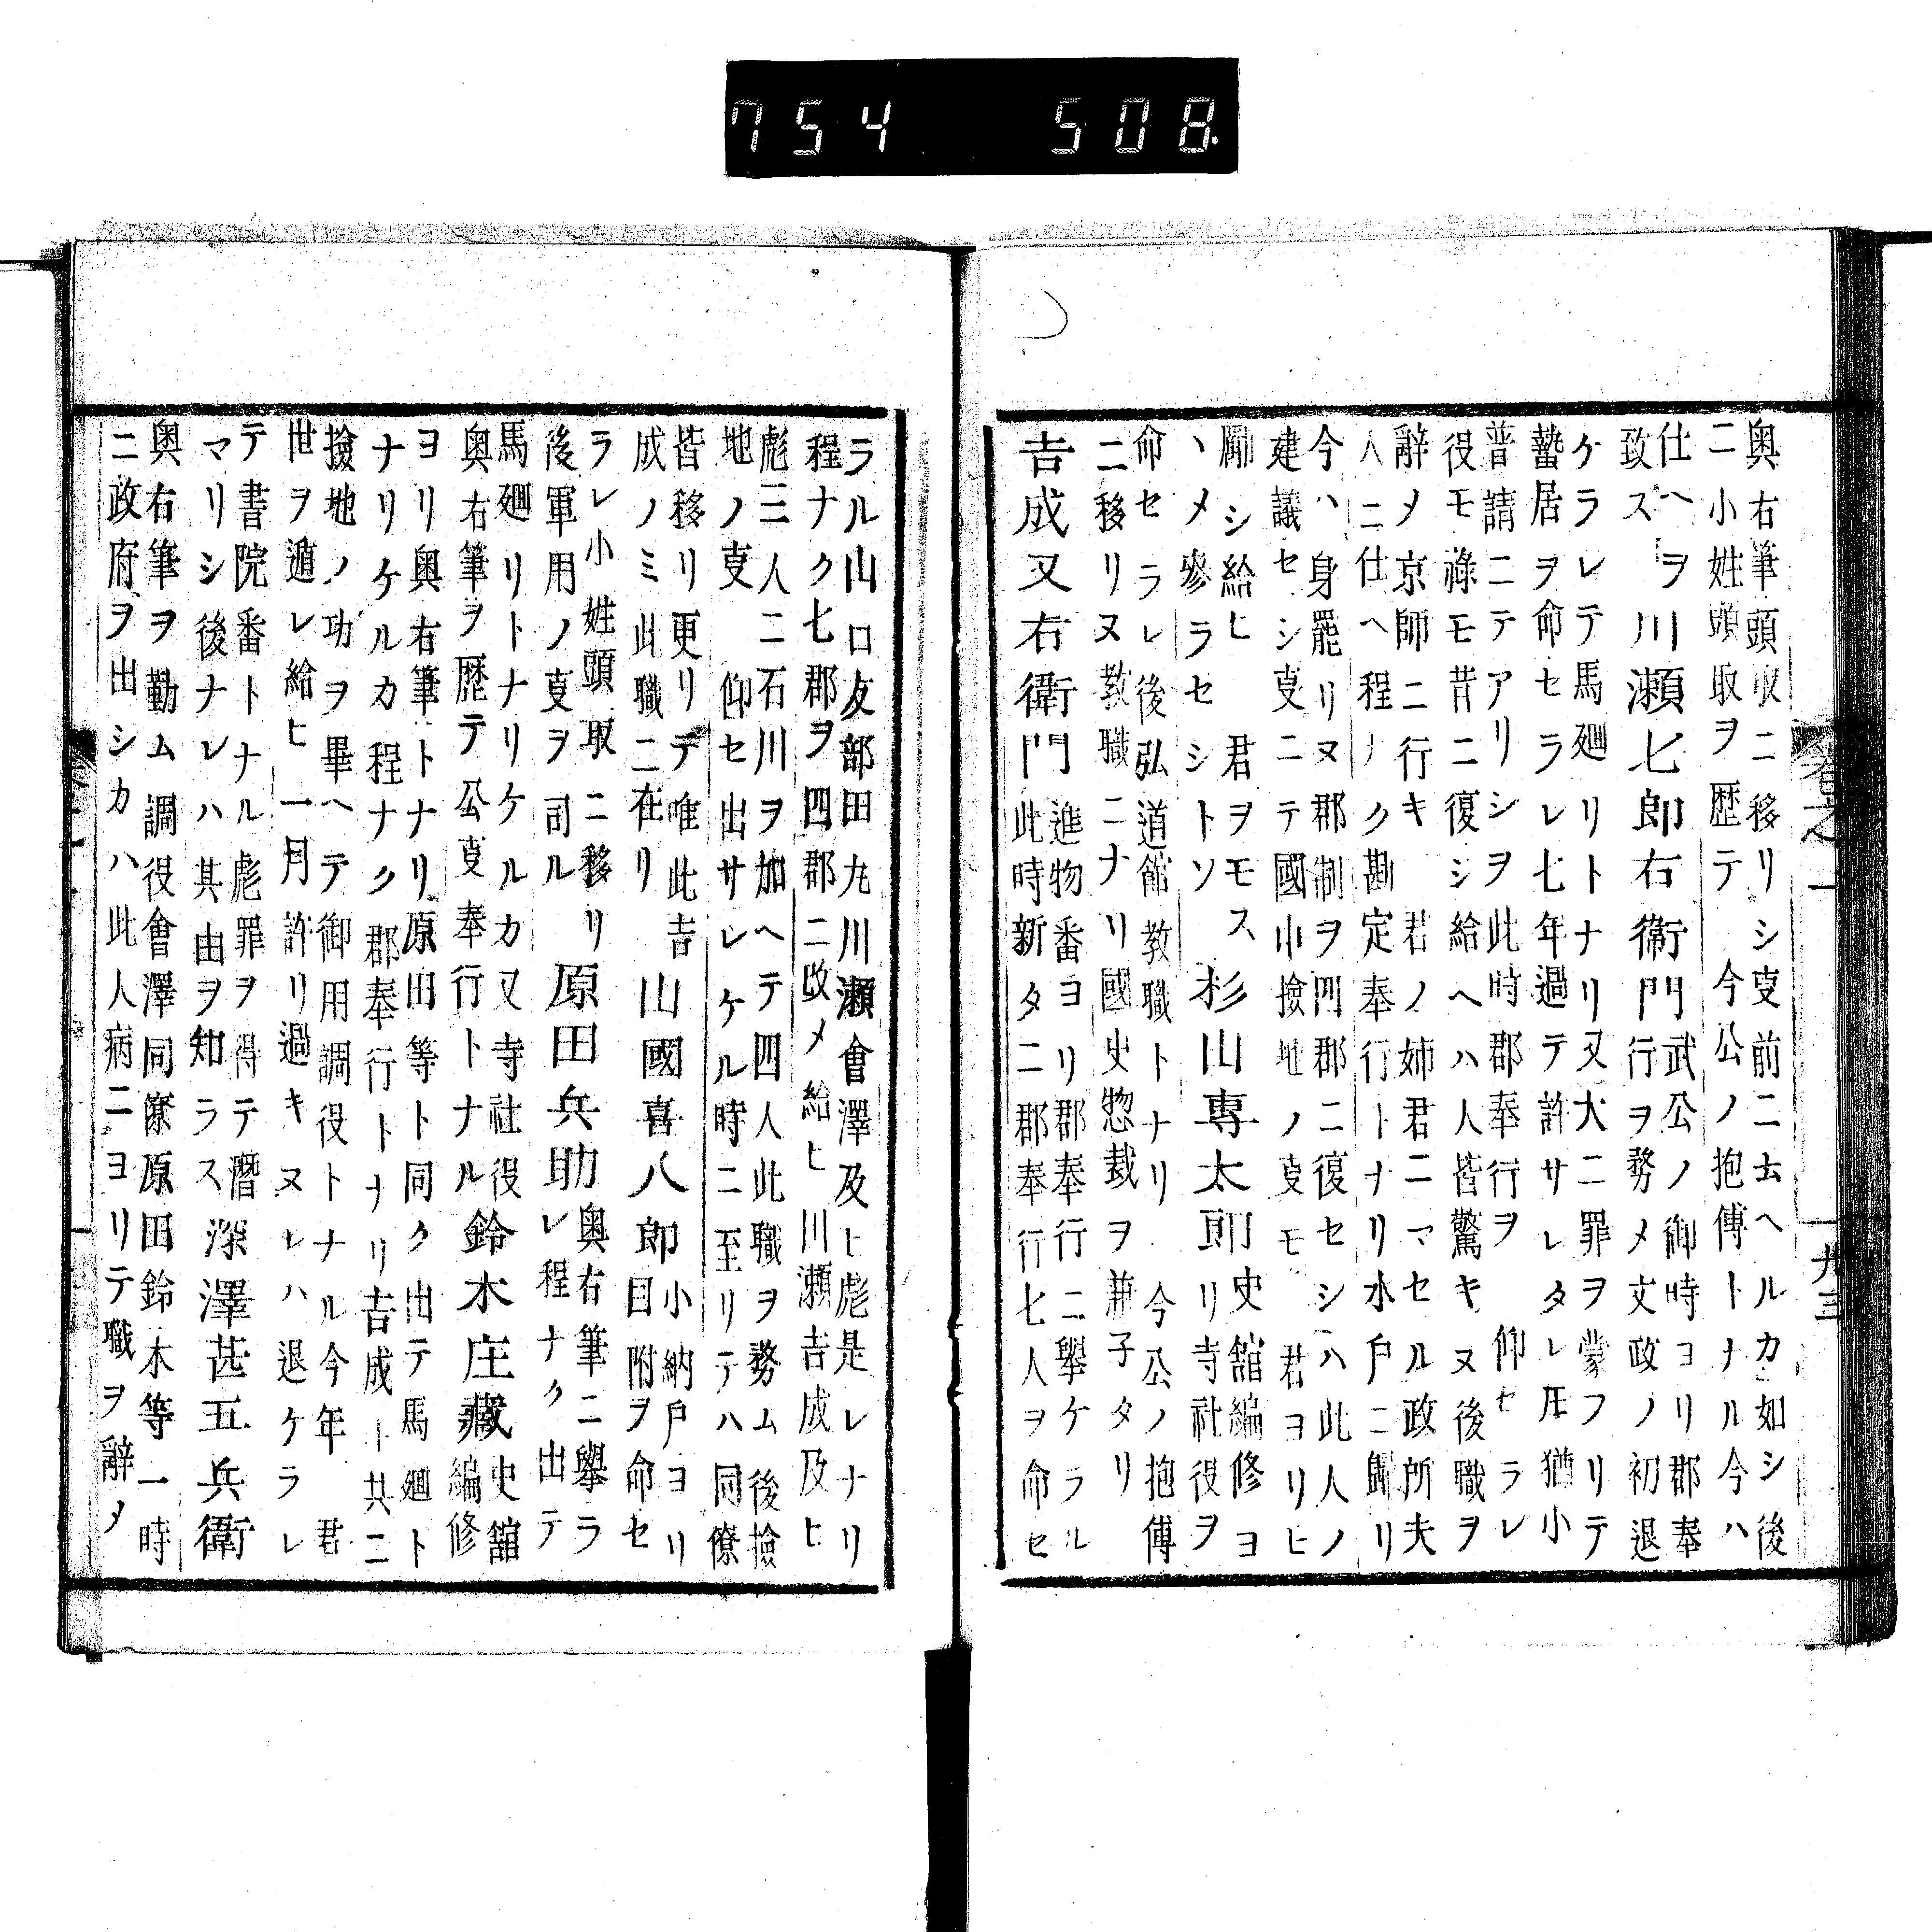 754 508
奥右筆頭取ニ移リシ㕝前ニ云ヘルカ如シ後
ニ小姓頭取ヲ歴テ 今公ノ抱傅トナル今ハ
仕ヘヲ
致ス
川瀬七郎右衛門
武公ノ御時ヨリ郡奉
行ヲ務メ文政ノ初退
ケラレテ馬廻リトナリ又大ニ罪ヲ蒙フリテ
蟄居ヲ命セラレ七年過テ許サレタレ𪜈猶小
普請ニテアリシヲ此時郡奉行ヲ 仰セラレ
役モ祿モ昔ニ復シ給ヘハ人皆驚キヌ後職ヲ
辭メ京師ニ行キ 君ノ姉君ニマセル政所夫
人ニ仕ヘ程ノク勘定奉行トナリ水戸ニ歸リ
今ハ身罷リヌ郡制ヲ四郡ニ復セシハ此人ノ
建議セシ㕝ニテ國中撿地ノ㕝モ 君ヨリヒ
勵シ給ヒ 君ヲモス
ヽメ參ラセシトソ
杉山專太郎
史舘編修ヨ
リ寺社役ヲ
命セラレ後弘道館教職トナリ 今公ノ抱傅
ニ移リヌ教職ニナリ國史惣裁ヲ兼子タリ
吉成又右衛門
進物番ヨリ郡奉行ニ擧ケラル
此時新タニ郡奉行七人ヲ命セ
ラル山口友部田丸川瀬會澤及ヒ彪是レナリ
程ナク七郡ヲ四郡ニ改メ給ヒ川瀬吉成及ヒ
彪三人ニ石川ヲ加ヘテ四人此職ヲ務ム後撿
地ノ㕝 仰セ出サレケル時ニ至リテハ同僚
皆移リ更リテ唯此吉
成ノミ此職ニ在リ
山國喜八郎
小納戸ヨリ
目附ヲ命セ
ラレ小姓頭取ニ移リ
後軍用ノ㕝ヲ司ル
原田兵助
奥右筆ニ擧ラ
レ程ナク出テ
馬廻リトナリケルカ又寺社役
奥右筆ヲ歴テ公㕝奉行トナル
鈴木庄藏
史舘
編修
ヨリ奥右筆トナリ原田等ト同ク出テ馬廻ト
ナリケルカ程ナク郡奉行トナリ吉成ト共ニ
撿地ノ功ヲ畢ヘテ御用調役トナル今年 君
世ヲ遁レ給ヒ一月許リ過キヌレハ退ケラレ
テ書院番トナル彪罪ヲ得テ潛
マリシ後ナレハ其由ヲ知ラス
深澤甚五兵衛
奥右筆ヲ勤ム調役會澤同寮原田鈴木等一時
ニ政府ヲ出シカハ此人病ニヨリテ職ヲ辭メ